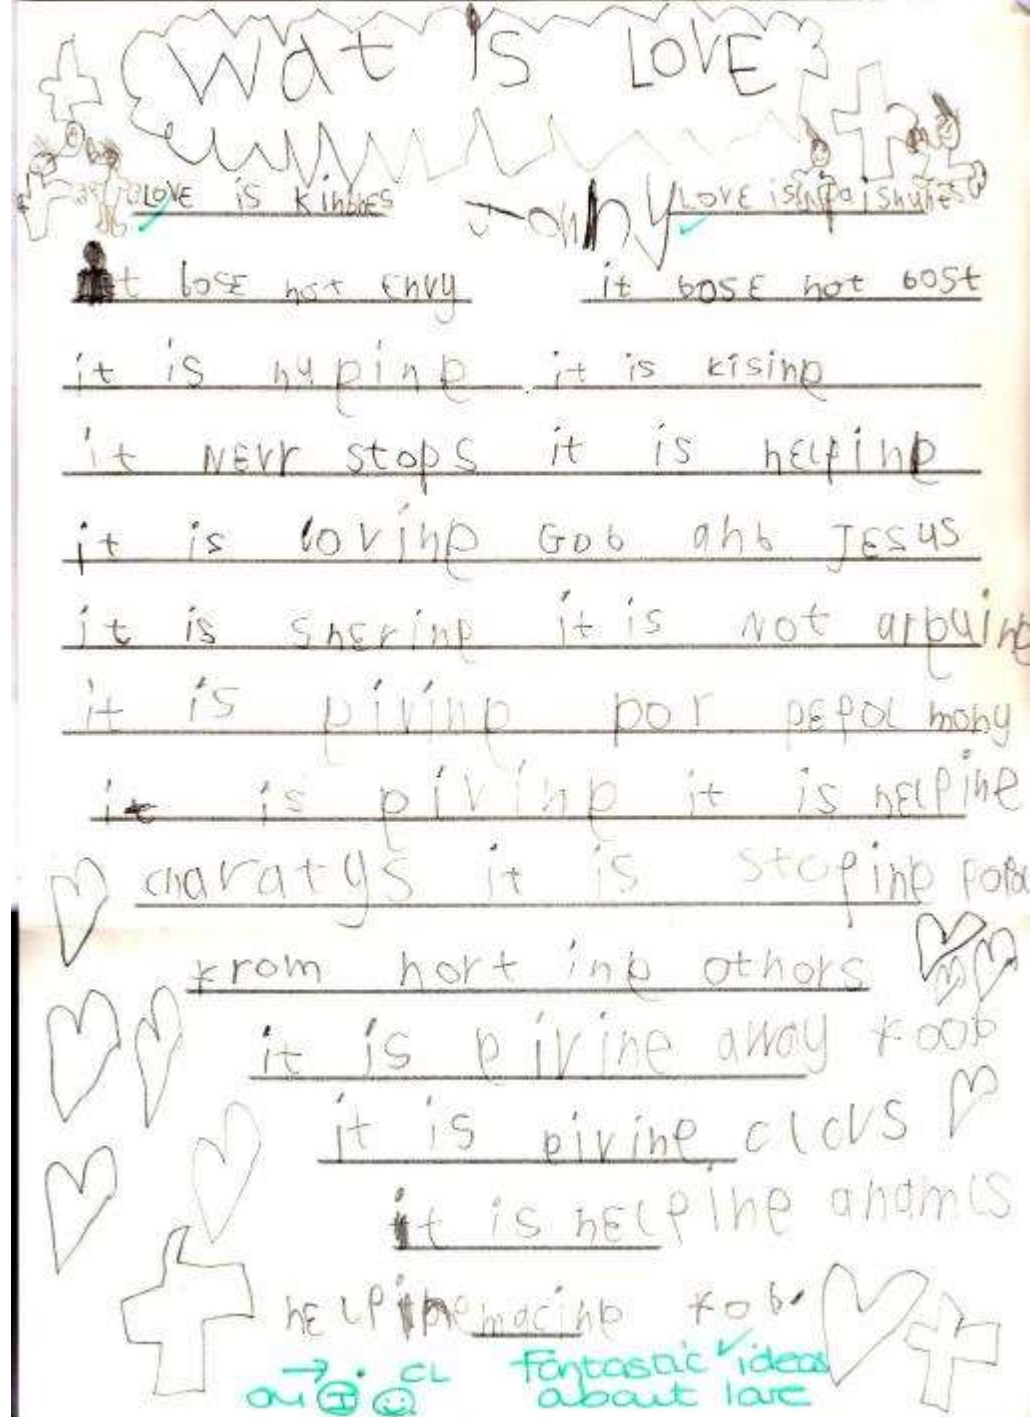 Wat is LOVE
LOVE is Kindnes Jonny LOVE is paishunes
it bose not Envy it bose not bost
it is huging it is kising
it NEvr stops it is hElping
it is loving Gob anb JEsus
it is shering it is Not arguing
it is giving por pepol mony
it is giving it is hElping
charatys it is stoping popol
from horting othors
it is giving away foob
it is giving clovs
it is hElping anamls
hElping macing fob
ow I CL Fantastic ideas
about love